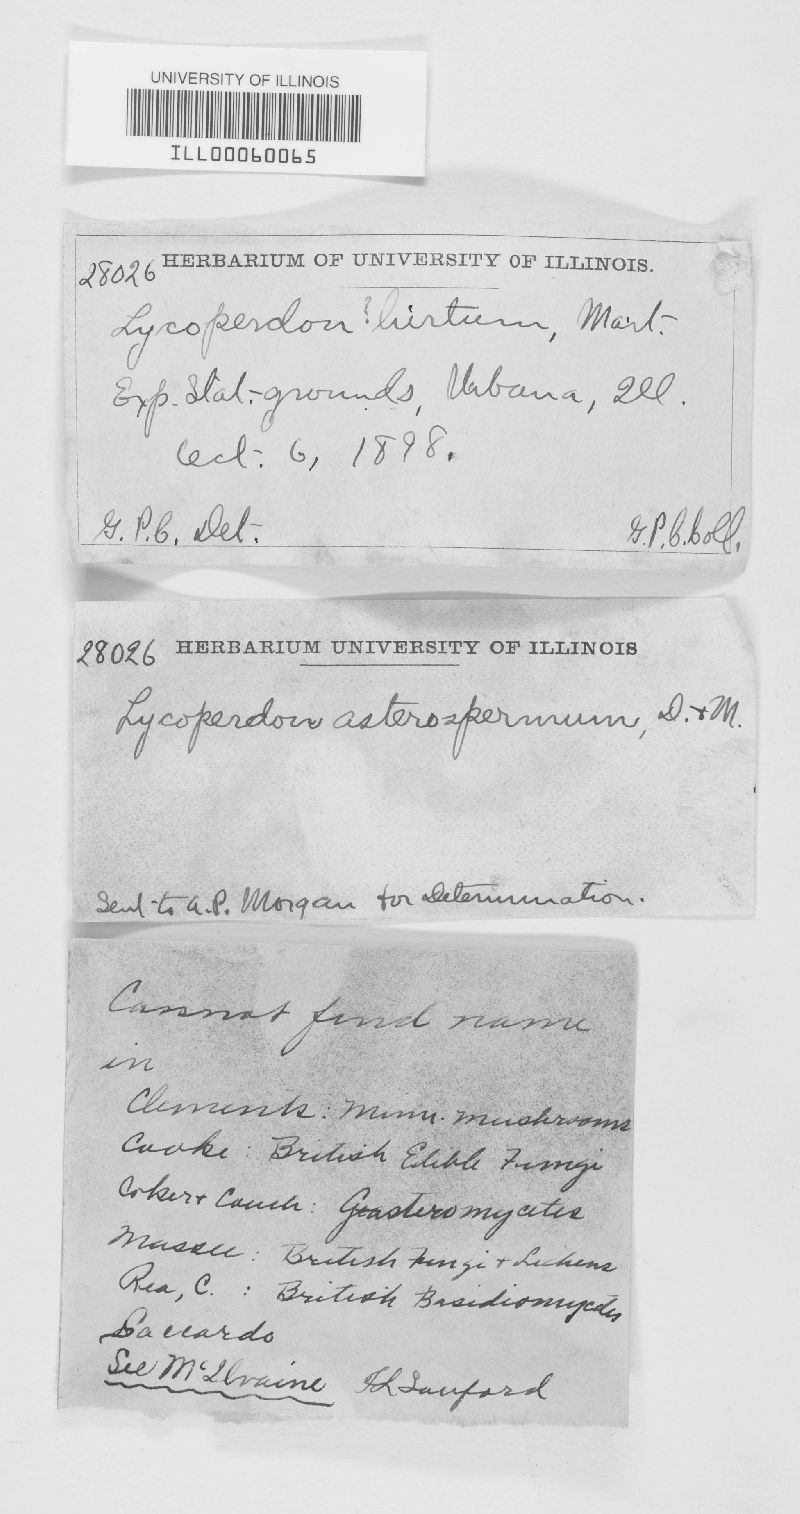 UNIVERSITY OF ILLINOIS
ILL00060065
28026 HERBARIUM OF UNIVERSITY OF ILLINOIS.
Lycoperdon ? hirtum, Mart.
Exp. Stat. grounds, Urbana, Ill.
Oct. 6, 1898.
G. P. C. Det. G. P. C. Coll.
28026 HERBARIUM UNIVERSITY OF ILLINOIS
Lycoperdon asterospermum, D. + M.
Sent to A. P. Morgan for Determination.
Cannot find name
in
Clements: Minn. mushrooms
Cooke: British Edible Fungi
Coker + Couch: Gasteromycetes
Massee: British Fungi + Lichens
Rea, C. : British Basidiomycetes
Saccardo
See McIlvaine